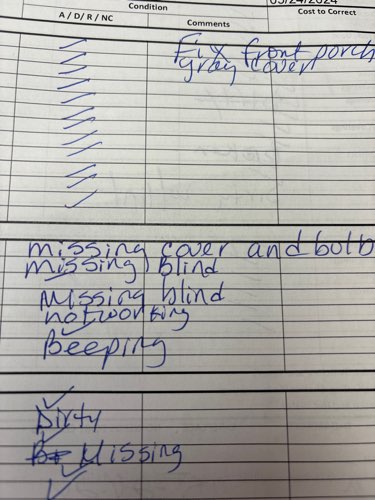 Condition
03/24/2024
A / D / R / NC
Comments
Cost to Correct
✓ Fix front porch
✓ gray cover
✓
✓
✓
✓
✓
✓
✓
✓
✓
✓
missing cover and bulb
missing blind
✓
Missing blind
not working
✓
Beeping
✓
Dirty
✓
Missing
✓
✓